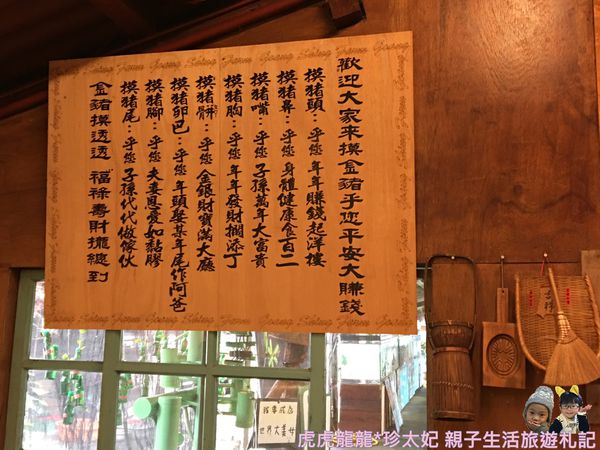 歡迎大家來摸金豬乎您平安大賺錢
摸豬頭：乎您 年年賺錢起洋樓
摸豬鼻：乎您 身體健康食百二
摸豬嘴：乎您 子孫萬年大富貴
摸豬胸：乎您 年年發財擱添丁
摸豬骿：乎您 金銀財寶滿大廳
摸豬卵巴：乎您 年頭娶某年尾作阿爸
摸豬腳：乎您 夫妻恩愛如黏膠
摸豬尾：乎您 子孫代代做傢伙
金豬摸透透 福祿壽財攏總到
世界大
虎虎龍龍*珍太妃 親子生活旅遊札記